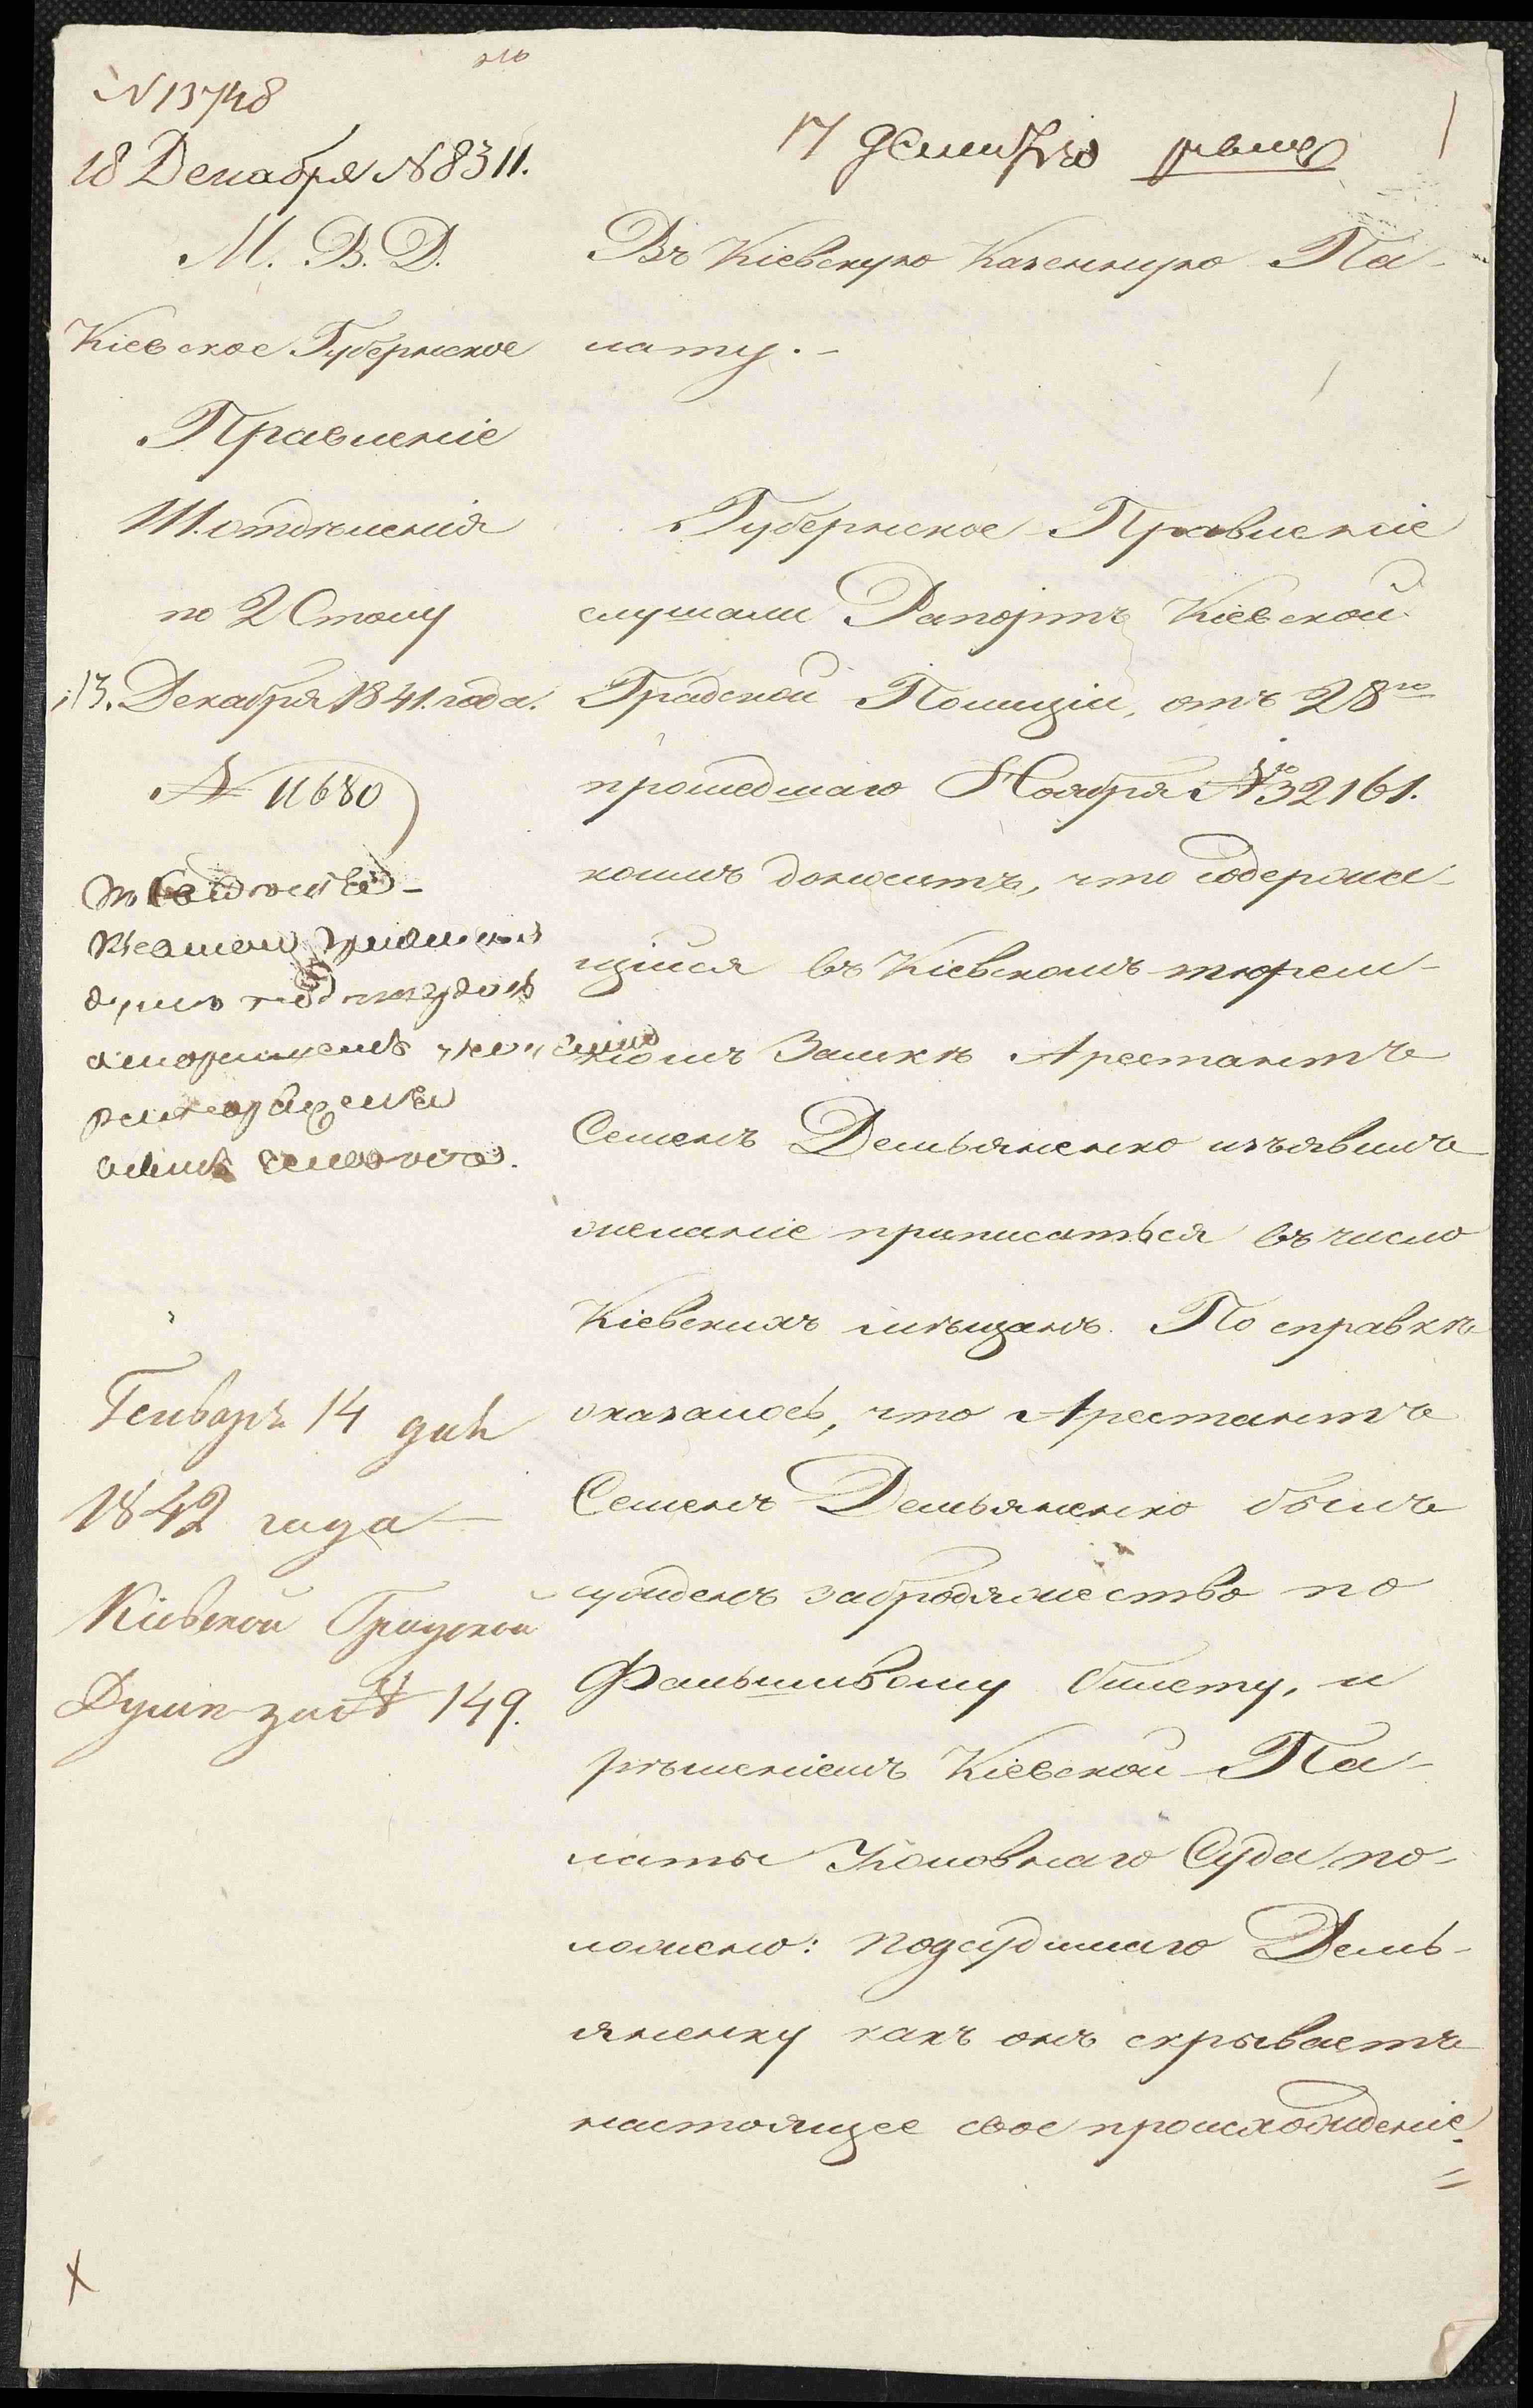 № 13748
18 Декабря № 8311.
М. В. Д.
Кіевское Губернское
Правленіе
III. отдѣленія
по 2 Столу
13. Декабря 1841. года.
№ 11680
Генваря 14 дня
1842 года
Кіевской Градской
Думѣ за № 149.
17 декабря
1
Въ Кіевскую Казенную Па-
лату.-
Губернское Правленіе
слушали Рапортъ Кіевской
Градской Полиціи, отъ 28го
прошедшаго Ноября № 32161.
коимъ доноситъ, что содержа-
щійся въ Кіевскомъ тюрем-
номъ Замкѣ Арестантъ
Семенъ Демьяненко изъявилъ
желаніе приписаться въ число
Кіевскихъ мѣщанъ. По справкѣ
оказалось, что Арестантъ
Семенъ Демьяненко былъ
сужденъ за бродяжество по
Фальшивому билету, и
рѣшеніемъ Кіевской Па-
латы Уголовнаго Суда, по-
ложено: подсудимаго Демь-
яненку какъ онъ скрываетъ
настоящее свое происхожденіе